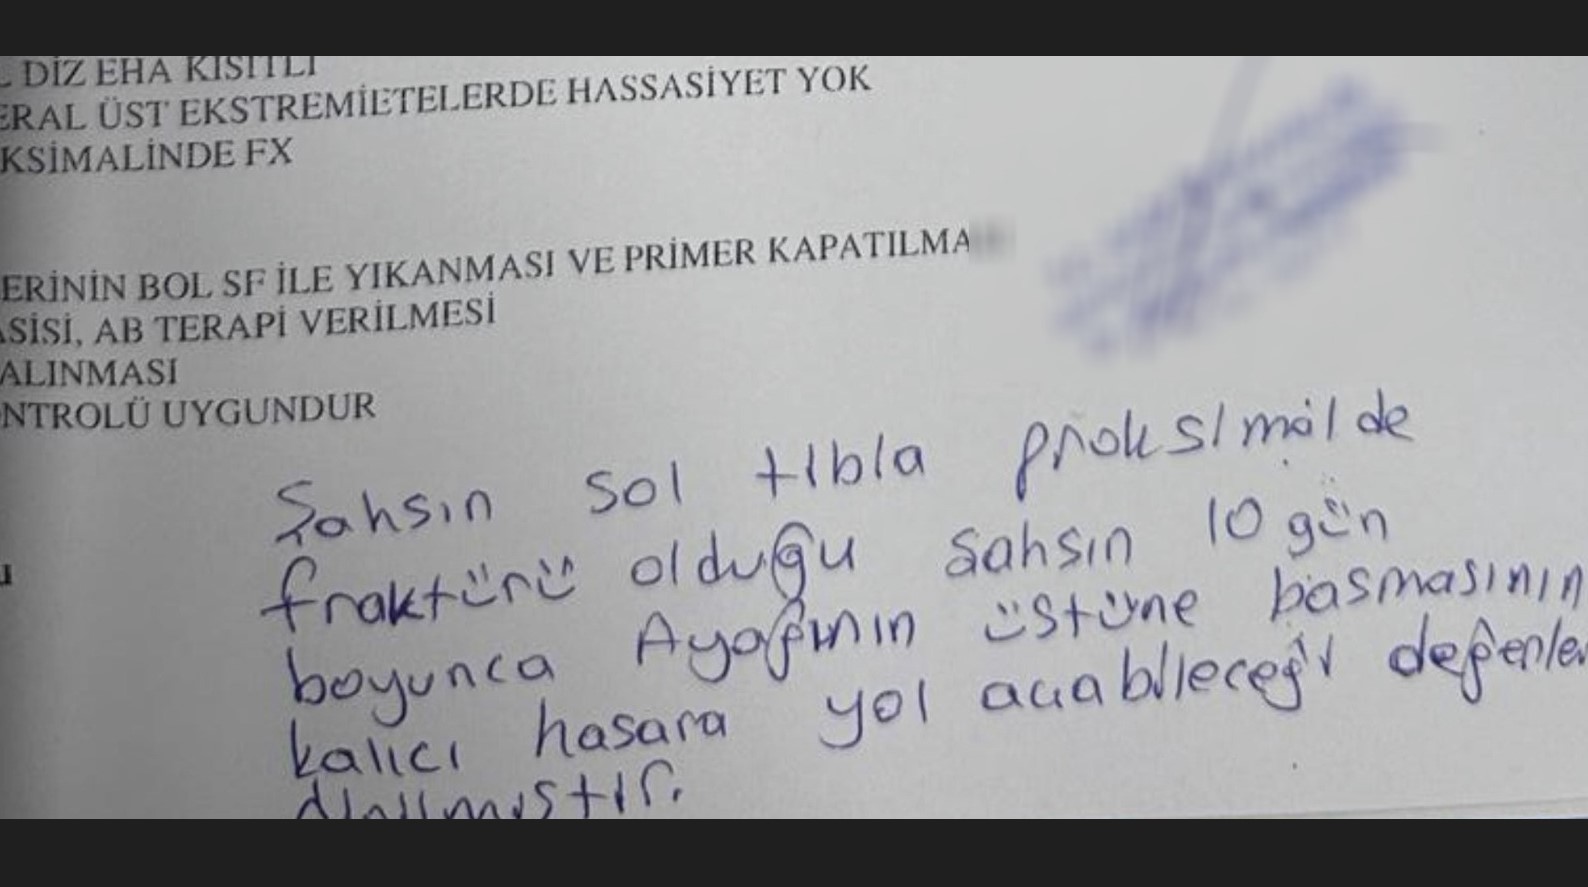 DİZ EHA KISITLI
ERAL ÜST EKSTREMİETELERDE HASSASİYET YOK
KSİMALİNDE FX
ERİNİN BOL SF İLE YIKANMASI VE PRİMER KAPATILMA
ASİSİ, AB TERAPİ VERİLMESİ
ALINMASI
ONTROLÜ UYGUNDUR
Şahsın sol tibia proksimalde
fraktürü olduğu sahsın 10 gün
boyunca Ayağının üstüne basmasının
kalıcı hasara yol açabileceği değerle